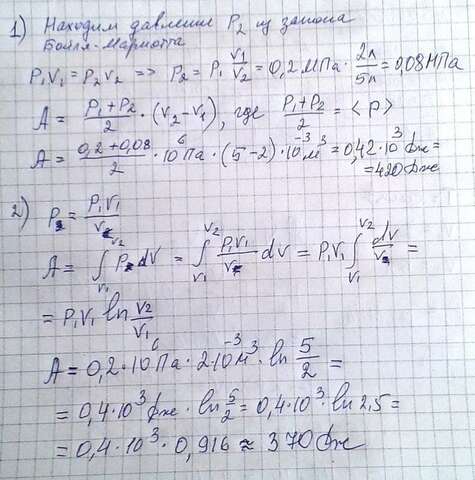 1) Находим давление P₂ из закона
Бойля-Мариотта
P₁V₁ = P₂V₂ => P₂ = P₁ V₁/V₂ = 0,2 МПа · 2л/5л = 0,08 МПа
A = (P₁ + P₂)/2 · (V₂ - V₁), где (P₁ + P₂)/2 = <P>
A = (0,2 + 0,08)/2 · 10⁶ Па · (5 - 2) · 10⁻³ м³ = 0,42 · 10³ Дж =
= 420 Дж
2) P = P₁V₁/V
A = ∫V₁V₂ P dV = ∫V₁V₂ P₁V₁/V dV = P₁V₁ ∫V₁V₂ dV/V =
= P₁V₁ ln V₂/V₁
A = 0,2 · 10⁶ Па · 2 · 10⁻³ м³ · ln 5/2 =
= 0,4 · 10³ Дж · ln 5/2 = 0,4 · 10³ · ln 2,5 =
= 0,4 · 10³ · 0,916 ≈ 370 Дж